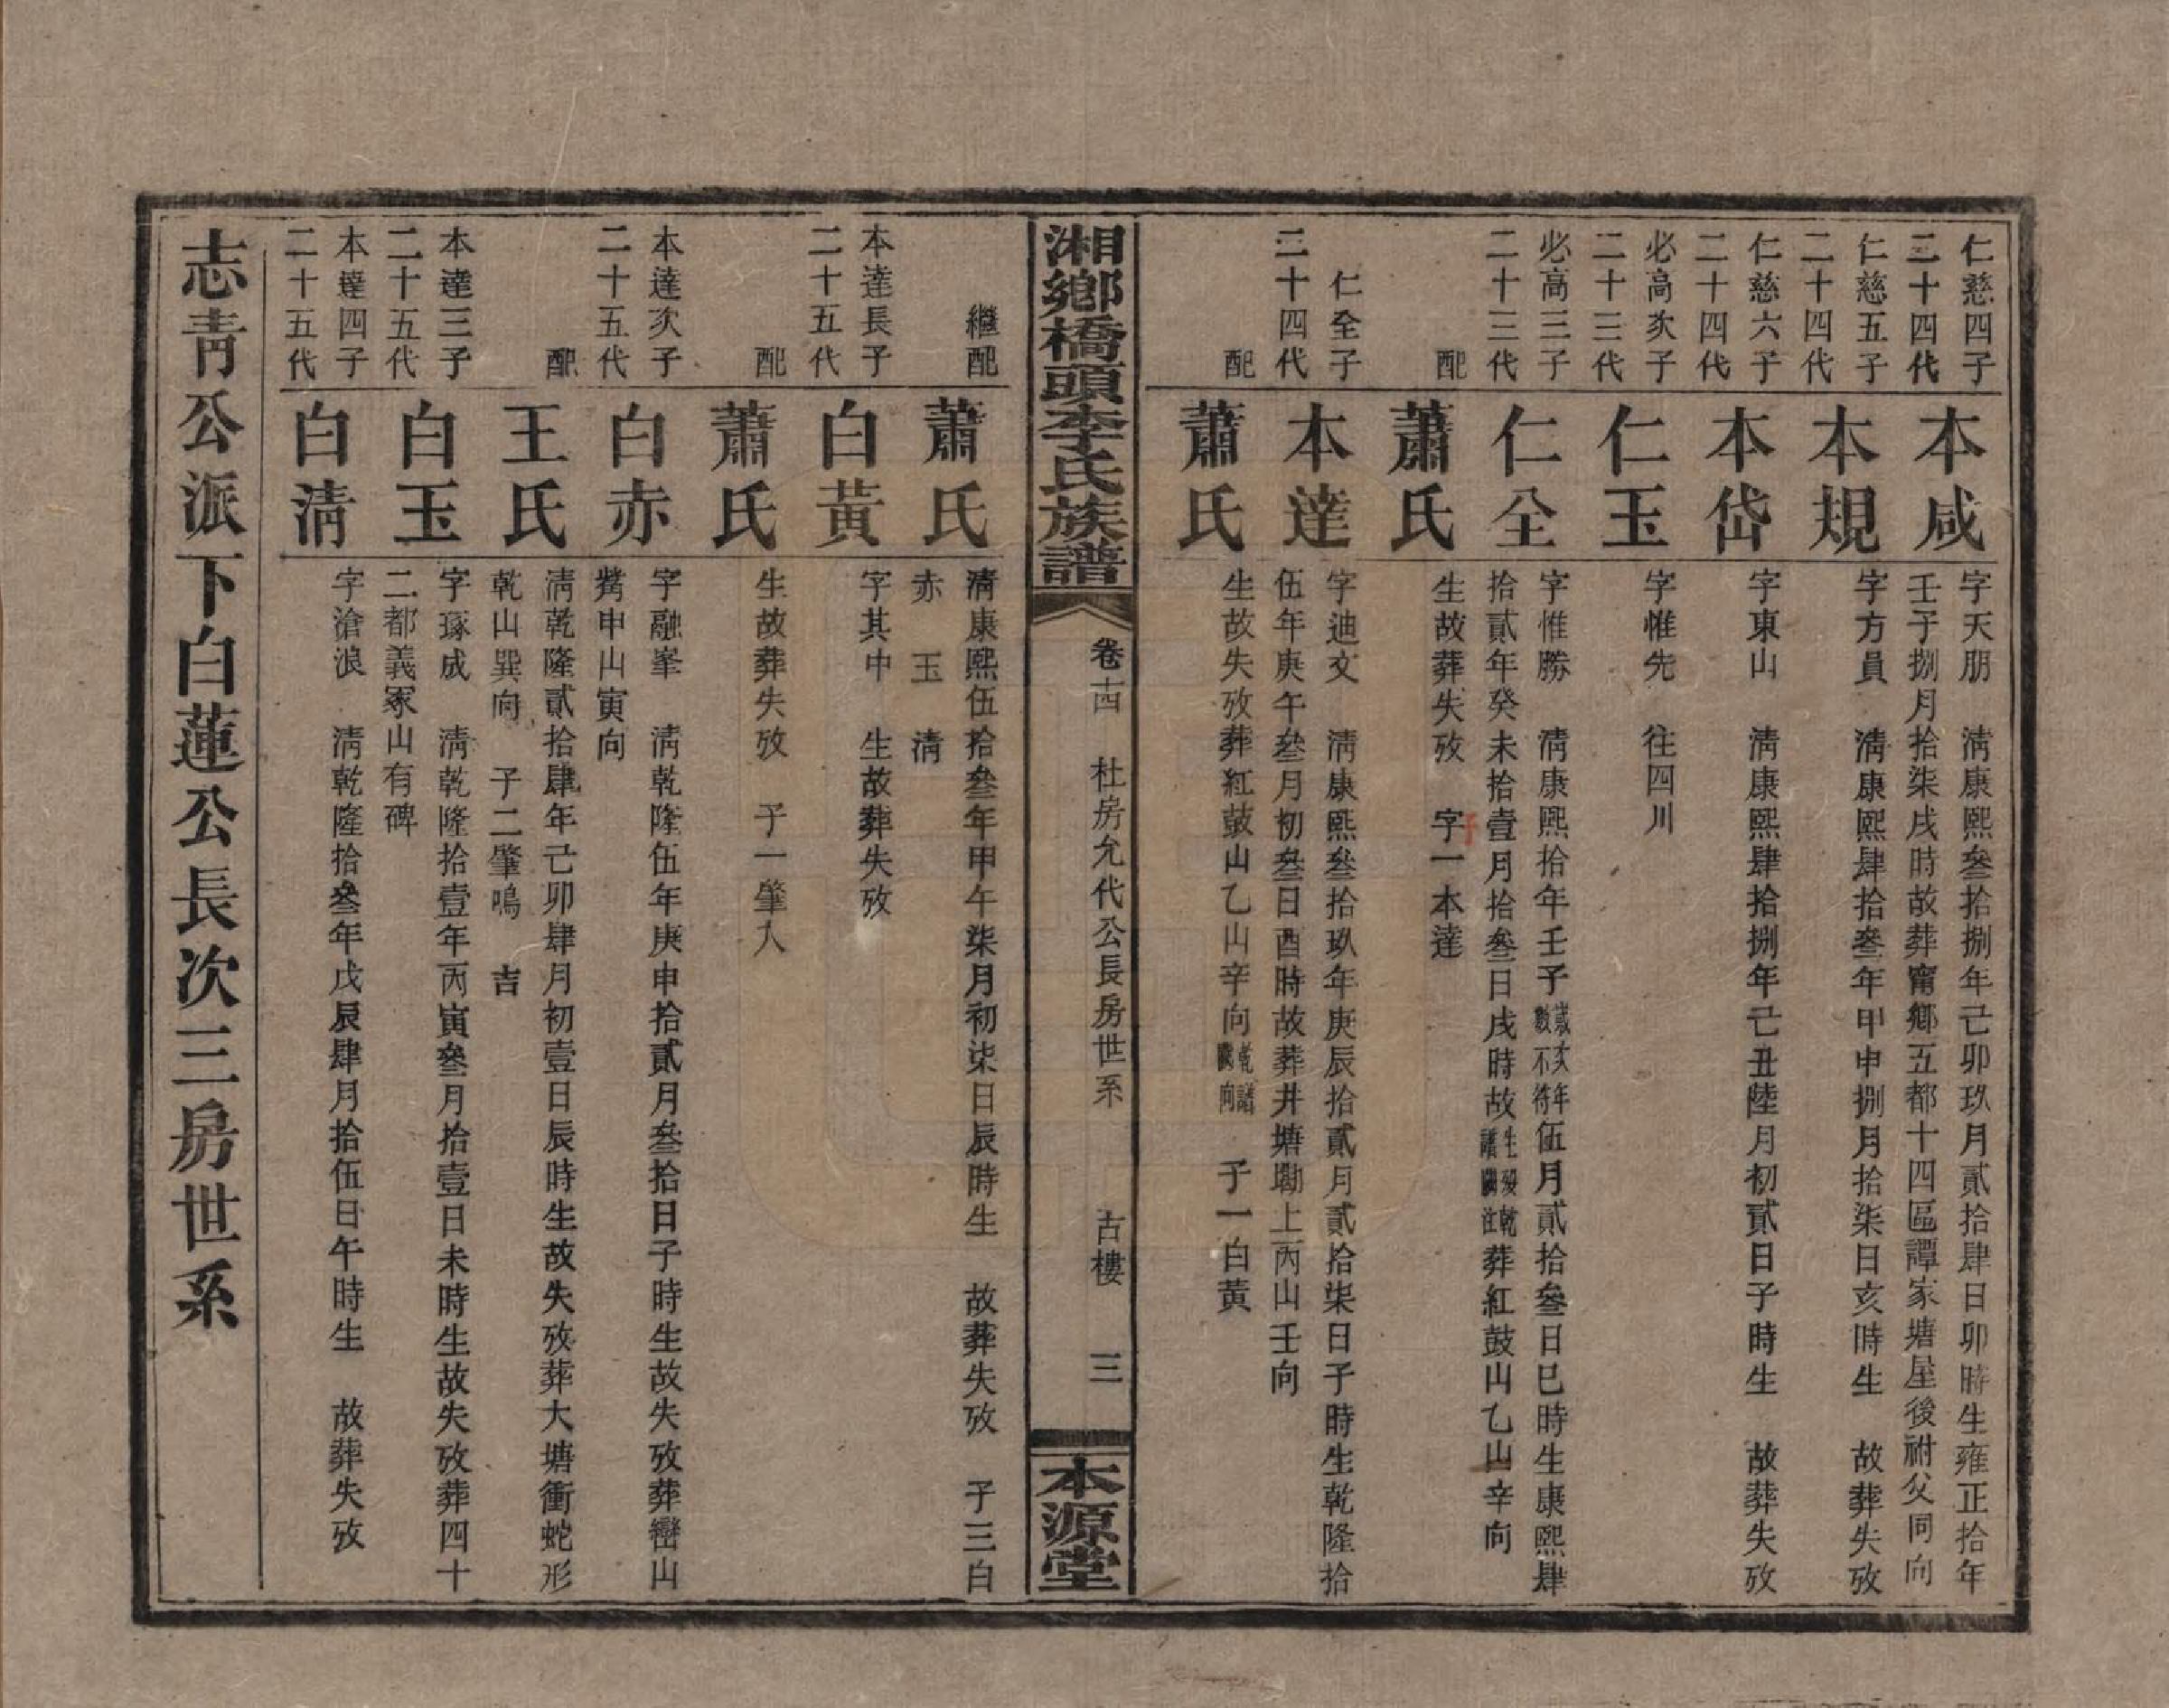 仁慈四子
二十四代
本咸
字天朋　清康熙叄拾捌年己卯玖月貳拾肆日卯時生雍正拾年
壬子捌月拾柒戌時故葬甯鄉五都十四區譚家塘屋後祔父同向
仁慈五子
二十四代
本規
字方員　清康熙肆拾叄年甲申捌月拾柒日亥時生　故葬失攷
仁慈六子
二十四代
本岱
字東山　清康熙肆拾捌年己丑陸月初貳日子時生　故葬失攷
必高次子
二十三代
仁玉
字惟先　往四川
必高三子
二十三代
仁全
字惟勝　清康熙拾年壬子歲次年數不符伍月貳拾叄日巳時生康熙肆
拾貳年癸未拾壹月拾叄日戌時故生歿乾譜闕注葬紅鼓山乙山辛向
配
蕭氏
生故葬失攷　字一本達
子
仁全子
二十四代
本達
字迪文　清康熙叄拾玖年庚辰拾貳月貳拾柒日子時生乾隆拾
伍年庚午叄月初叄日酉時故葬井塘墈上丙山壬向
配
蕭氏
生故失攷葬紅鼓山乙山辛向乾譜闕向　子一白黃
湘鄉橋頭李氏族譜
卷十四　杜房允代公長房世系　古樓　三
本源堂
繼配
蕭氏
清康熙伍拾叄年甲午柒月初柒日辰時生　故葬失攷　子三白
赤　玉　清
本達長子
二十五代
白黃
字其中　生故葬失攷
配
蕭氏
生故葬失攷　子一肇人
本達次子
二十五代
白赤
字融峯　清乾隆伍年庚申拾貳月叄拾日子時生故失攷葬巒山
申山寅向
配
王氏
清乾隆貳拾肆年己卯肆月初壹日辰時生故失攷葬大塘衝蛇形
乾山巽向　子二肇鳴　吉
本達三子
二十五代
白玉
字琢成　清乾隆拾壹年丙寅叄月拾壹日未時生故失攷葬四十
二都義冢山有碑
本達四子
二十五代
白清
字滄浪　清乾隆拾叄年戊辰肆月拾伍日午時生　故葬失攷
志青公派下白蓮公長次三房世系